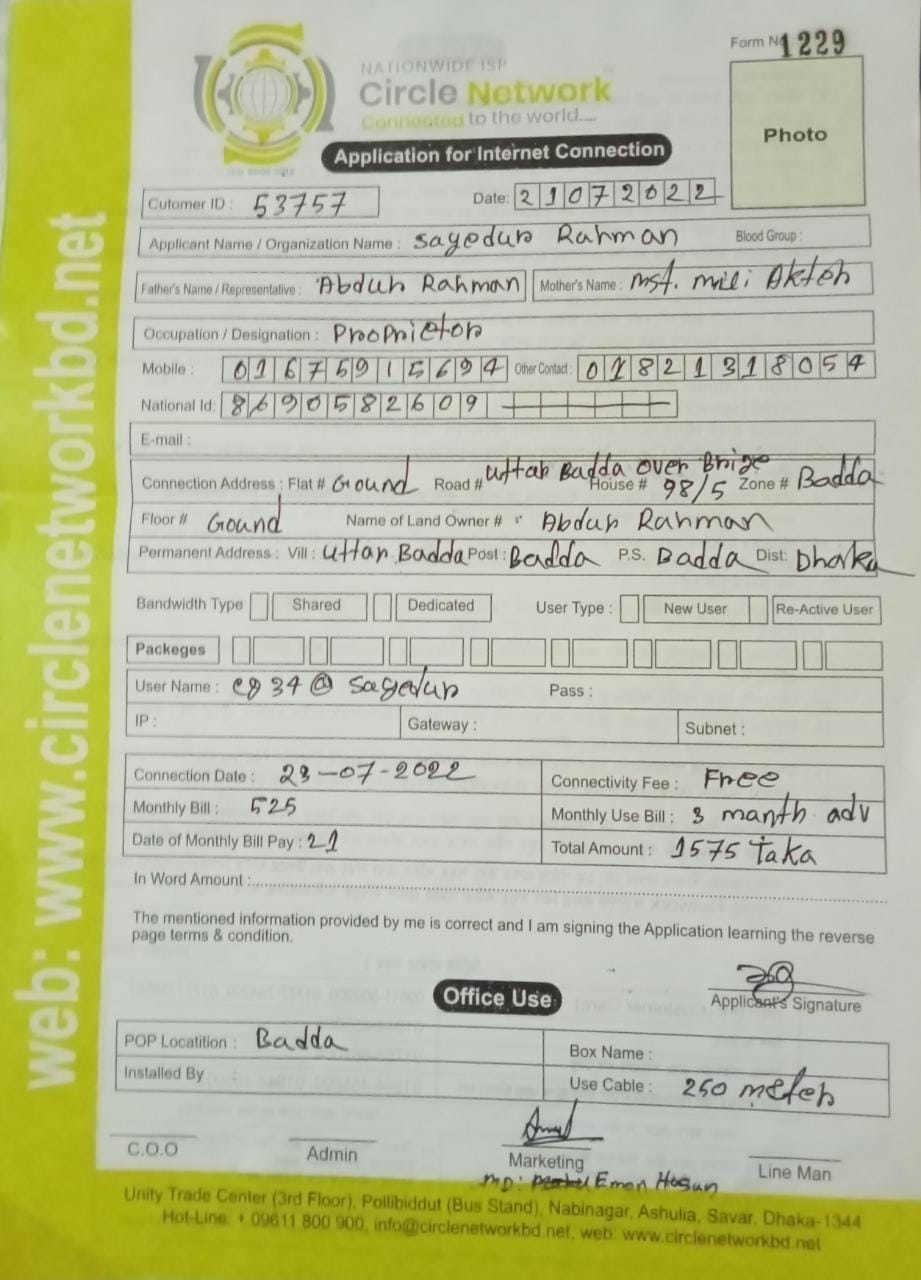 Form No 1229
NATIONWIDE ISP
Circle Network
Connected to the world.....
Photo
Application for Internet Connection
Cutomer ID : 53757 Date: 21072022
Applicant Name / Organization Name : Sayedur Rahman Blood Group :
Father's Name / Representative : Abdur Rahman Mother's Name : Mst. Mili Akter
Occupation / Designation : Proprietor
Mobile : 01675915694 Other Contact : 01821318054
National Id: 8690582609
E-mail :
Connection Address : Flat # Ground Road # Uttar Badda Over Brige House # 98/5 Zone # Badda
Floor # Gound Name of Land Owner # : Abdur Rahman
Permanent Address : Vill : Uttar Badda Post : Badda P.S. Badda Dist: Dhaka
Bandwidth Type Shared Dedicated User Type : New User Re-Active User
Packeges
User Name : @ Sayedur Pass :
IP : Gateway : Subnet :
Connection Date : 23-07-2022 Connectivity Fee : Free
Monthly Bill : 525 Monthly Use Bill : 3 manth adv
Date of Monthly Bill Pay : 21 Total Amount : 1575 Taka
In Word Amount :
The mentioned information provided by me is correct and I am signing the Application learning the reverse
page terms & condition.
Applicant's Signature
Office Use
POP Locatition : Badda Box Name :
Installed By Use Cable : 250 meter
C.O.O Admin Marketing Line Man
MD: Emon Hasan
Unity Trade Center (3rd Floor), Pollibiddut (Bus Stand), Nabinagar, Ashulia, Savar, Dhaka-1344
Hot-Line: + 09611 800 900, info@circlenetworkbd.net, web: www.circlenetworkbd.net
web: www.circlenetworkbd.net